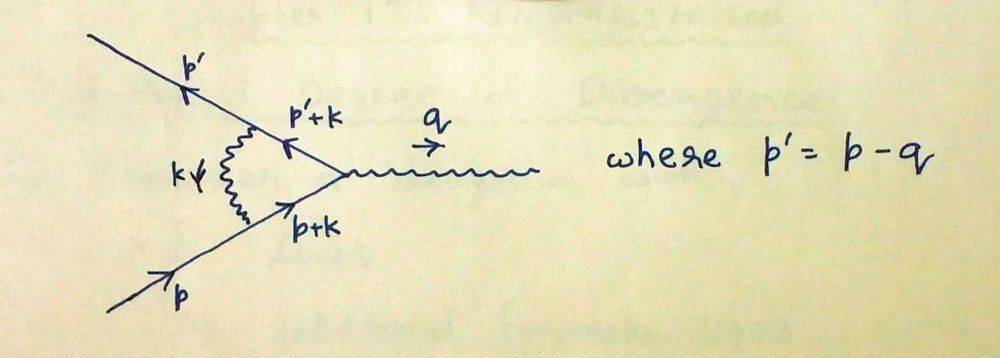 p'
p'+k
q
k
where p' = p - q
p+k
p